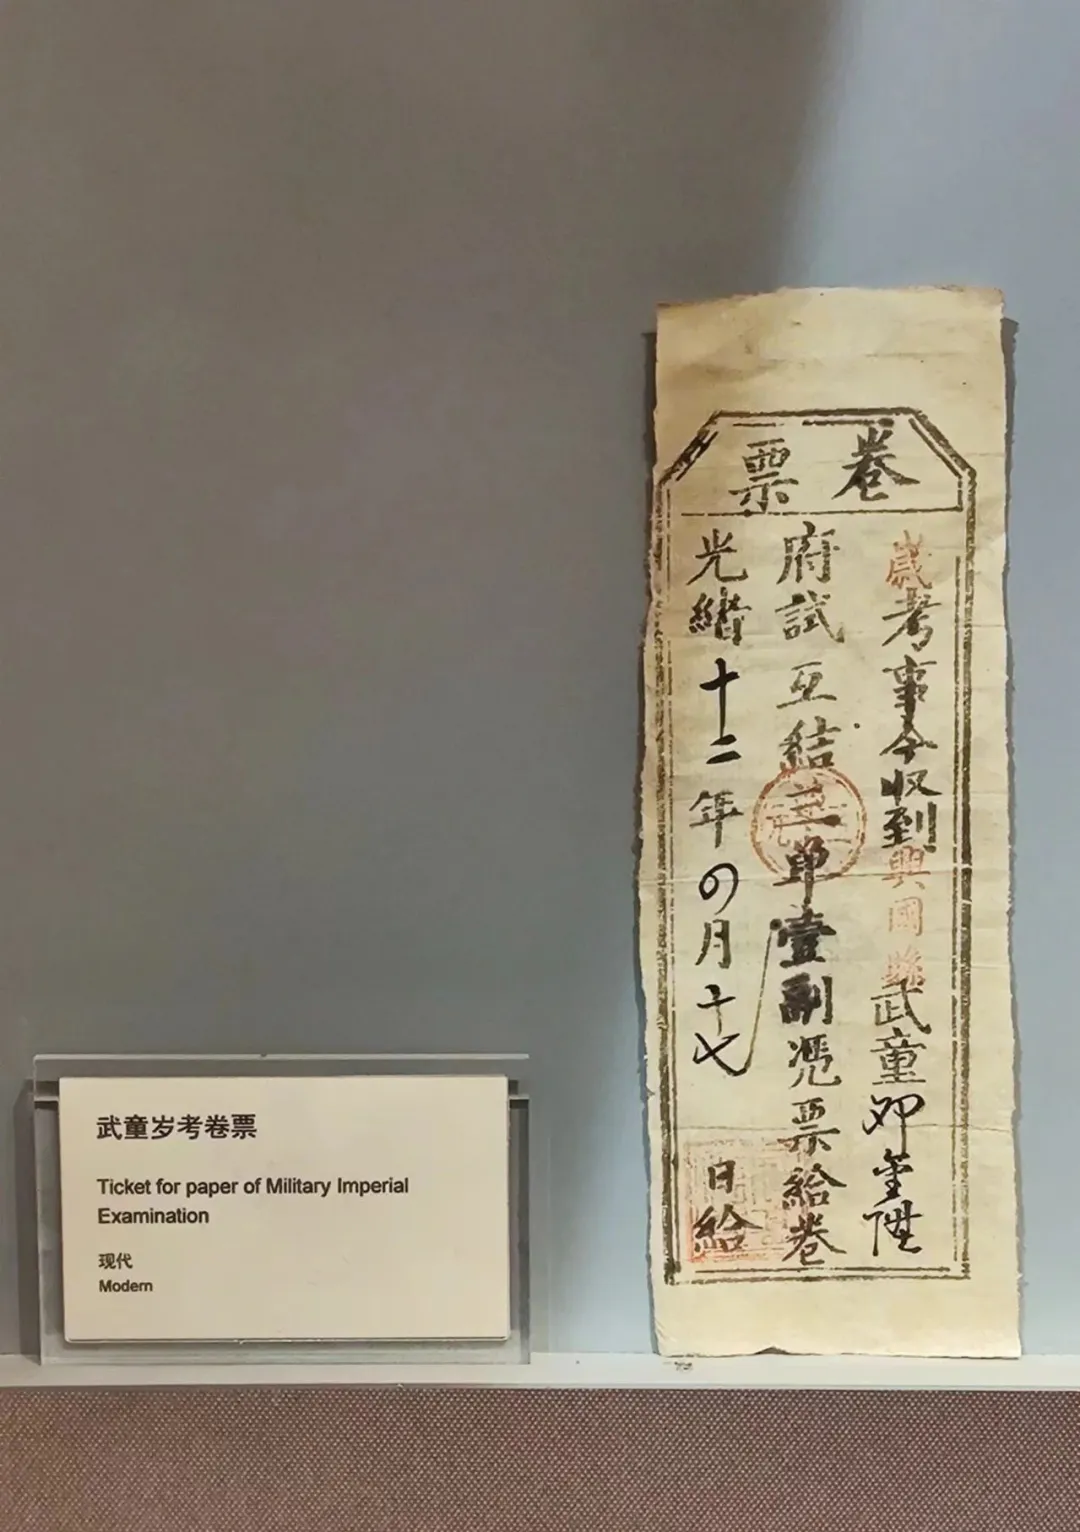 武童岁考卷票
Ticket for paper of Military Imperial
Examination
现代
Modern
卷票
歲考事今收到興國縣武童邓金陞
府試互結三单壹副憑票給卷
光緒十二年四月十七日給